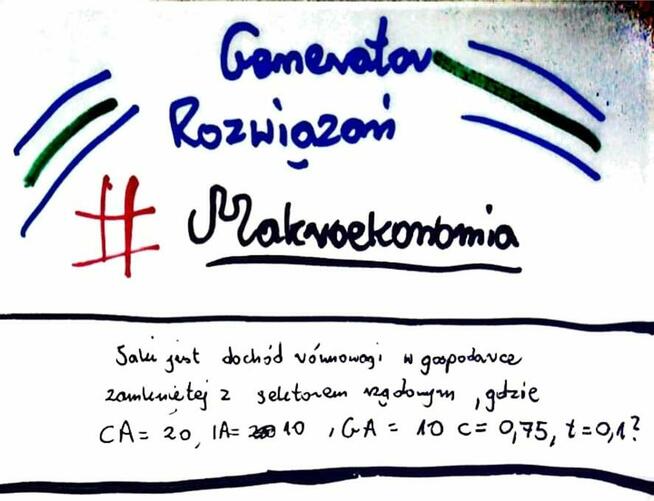 Generator
Rozwiązań
# Makroekonomia
Jaki jest dochód równowagi w gospodarce
zamkniętej z sektorem rządowym, gdzie
CA = 20, IA = 10, GA = 10 c = 0,75, t = 0,1?